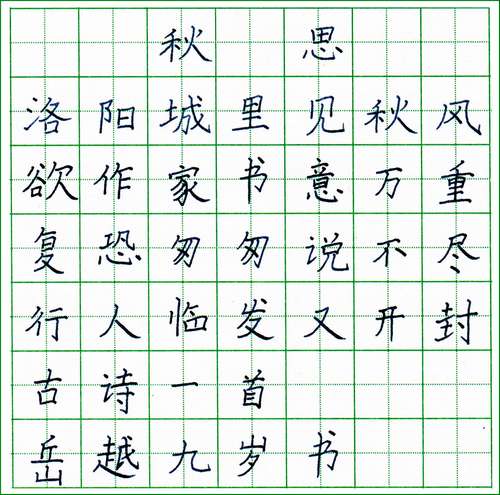 秋思
洛阳城里见秋风
欲作家书意万重
复恐匆匆说不尽
行人临发又开封
古诗一首
岳越九岁书